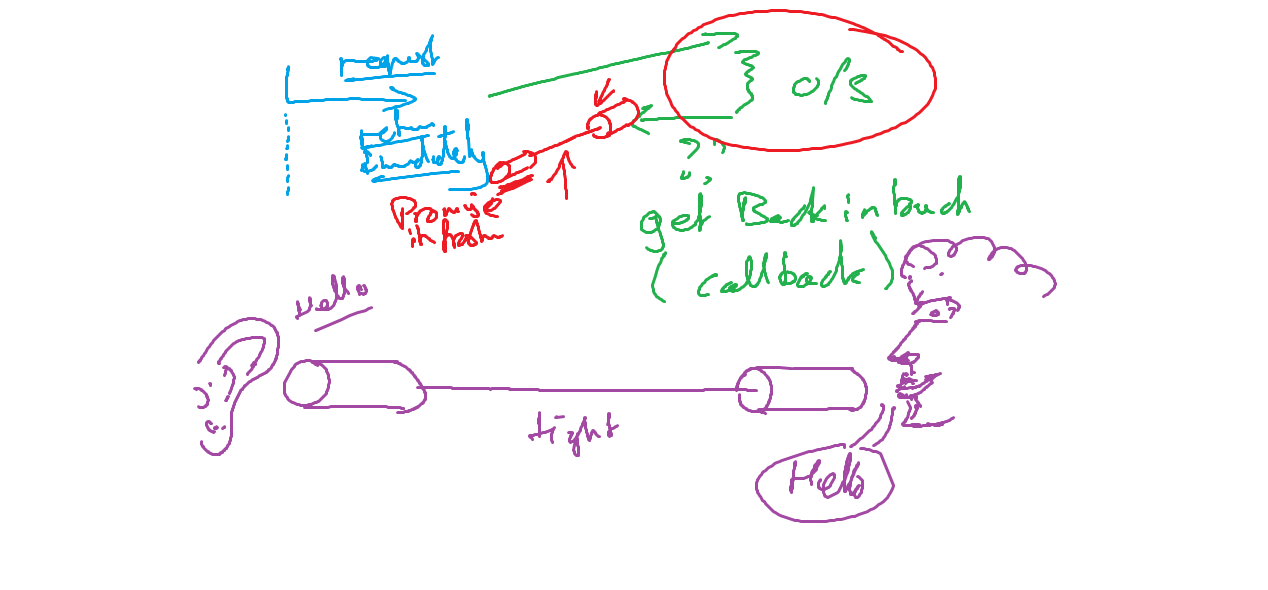 request
o/s
return
immediately
??
Promise
get Back in touch
(callback)
Hello
tight
Hello